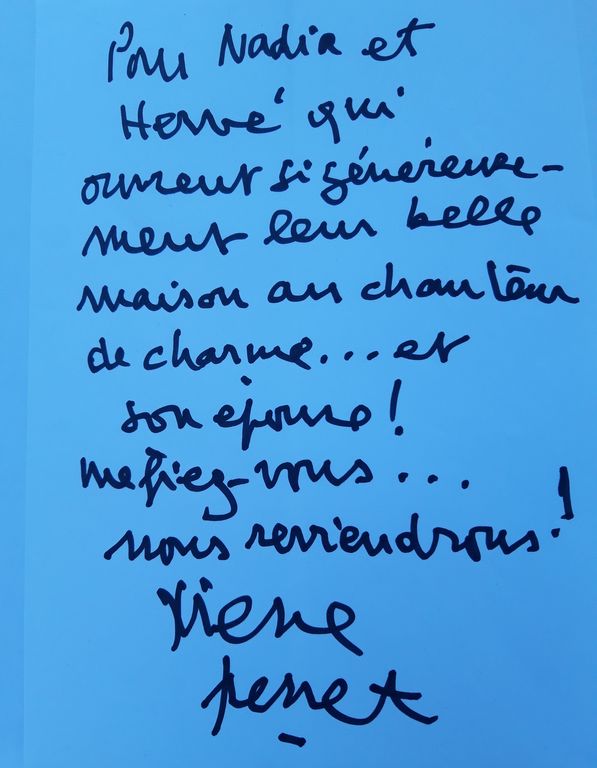 Pour Nadia et
Hervé qui
ouvrent si généreuse-
ment leur belle
maison au chanteur
de charme... et
son épouse!
méfiez-vous...
nous reviendrons!
Pierre
Perret